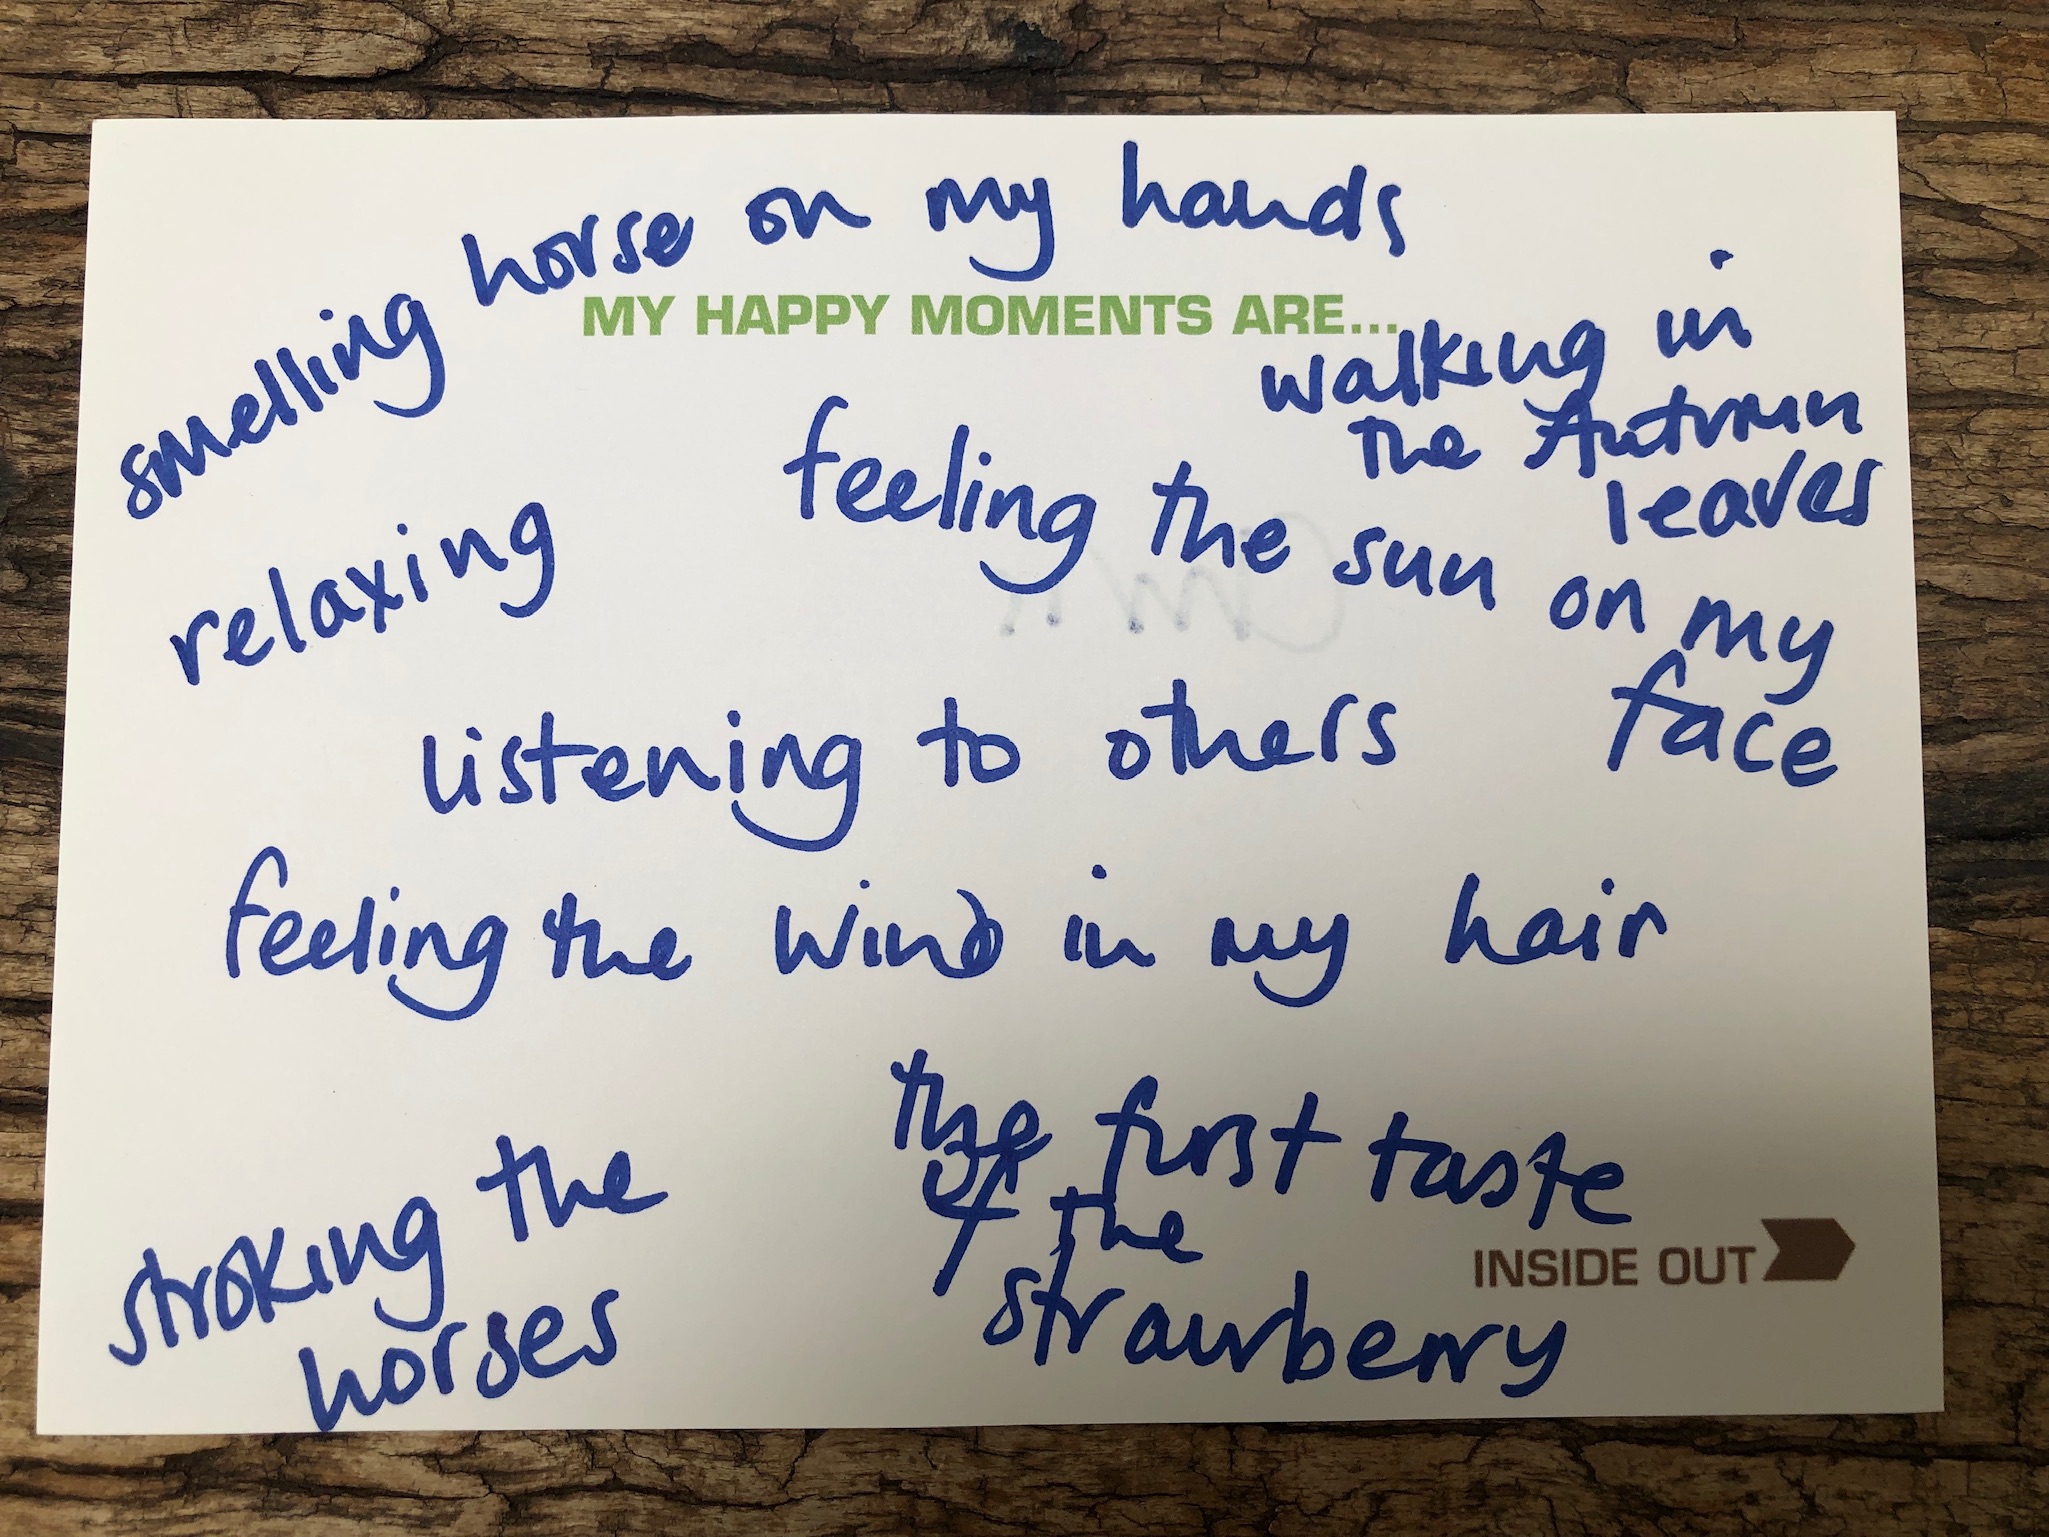 smelling horse on my hands
MY HAPPY MOMENTS ARE...
walking in
the Autumn
leaves
feeling the sun on my
face
relaxing
listening to others
feeling the wind in my hair
stroking the
horses
the first taste
of the
strawberry
INSIDE OUT